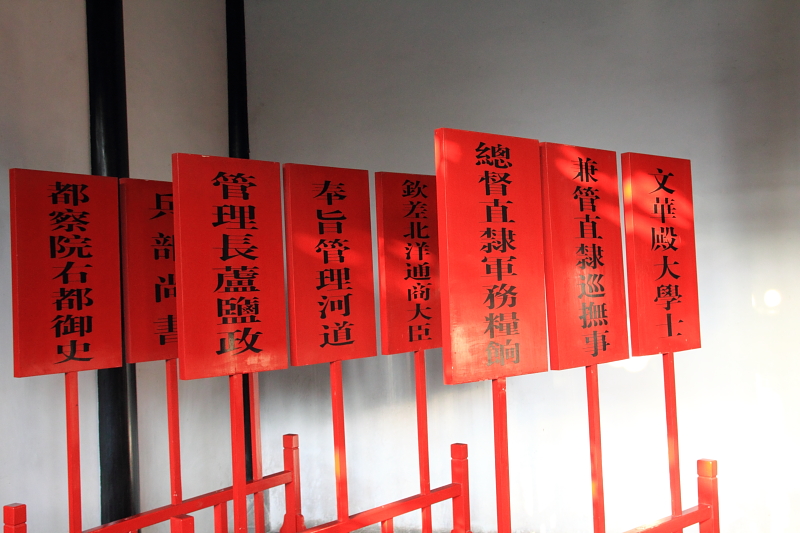 都察院右都御史
兵部尚書
管理長蘆鹽政
奉旨管理河道
欽差北洋通商大臣
總督直隸軍務糧餉
兼管直隸巡撫事
文華殿大學士